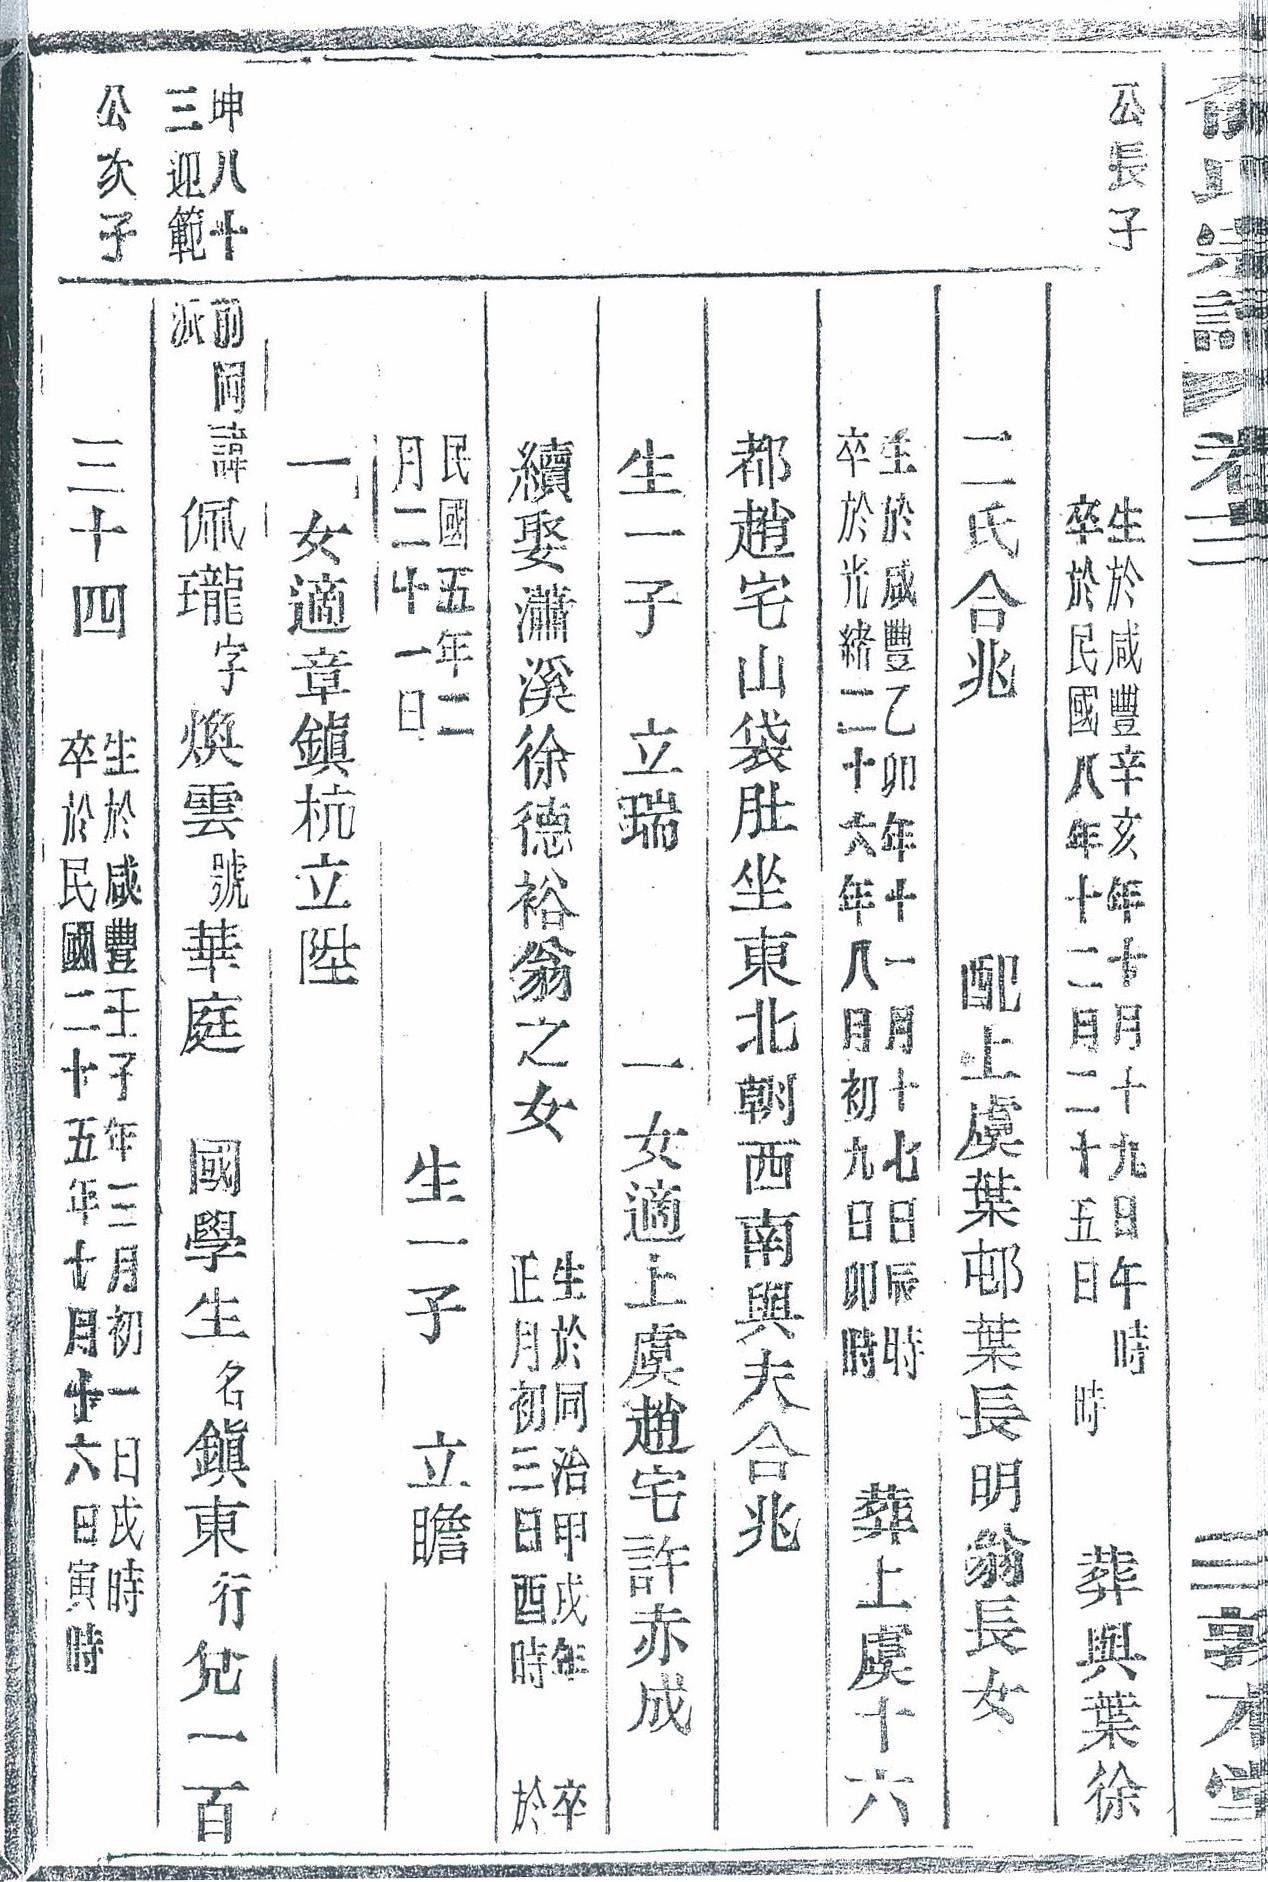 俞氏宗譜 卷二 三 敦本堂
公長子
生於咸豐辛亥年十月十九日午時
卒於民國八年十二月二十五日 時
葬與葉徐
二氏合兆 配上虞葉邨葉長明翁長女
生於咸豐乙卯年十一月十七日辰時
卒於光緒二十六年八日初九日卯時
葬上虞十六
都趙宅山袋肚坐東北朝西南與夫合兆
生一子 立瑞 一女適上虞趙宅許赤成
續娶瀟溪徐德裕翁之女
生於同治甲戌年
正月初三日酉時
卒
於
民國五年二
月二十一日
生一子 立瞻
一女適章鎮杭立陞
坤八十
三迎範
前岡諱
派
佩瓏字煥雲號華庭 國學生名鎮東行兌一百
公次子
三十四
生於咸豐壬子年三月初一日戌時
卒於民國二十五年十月十六日寅時